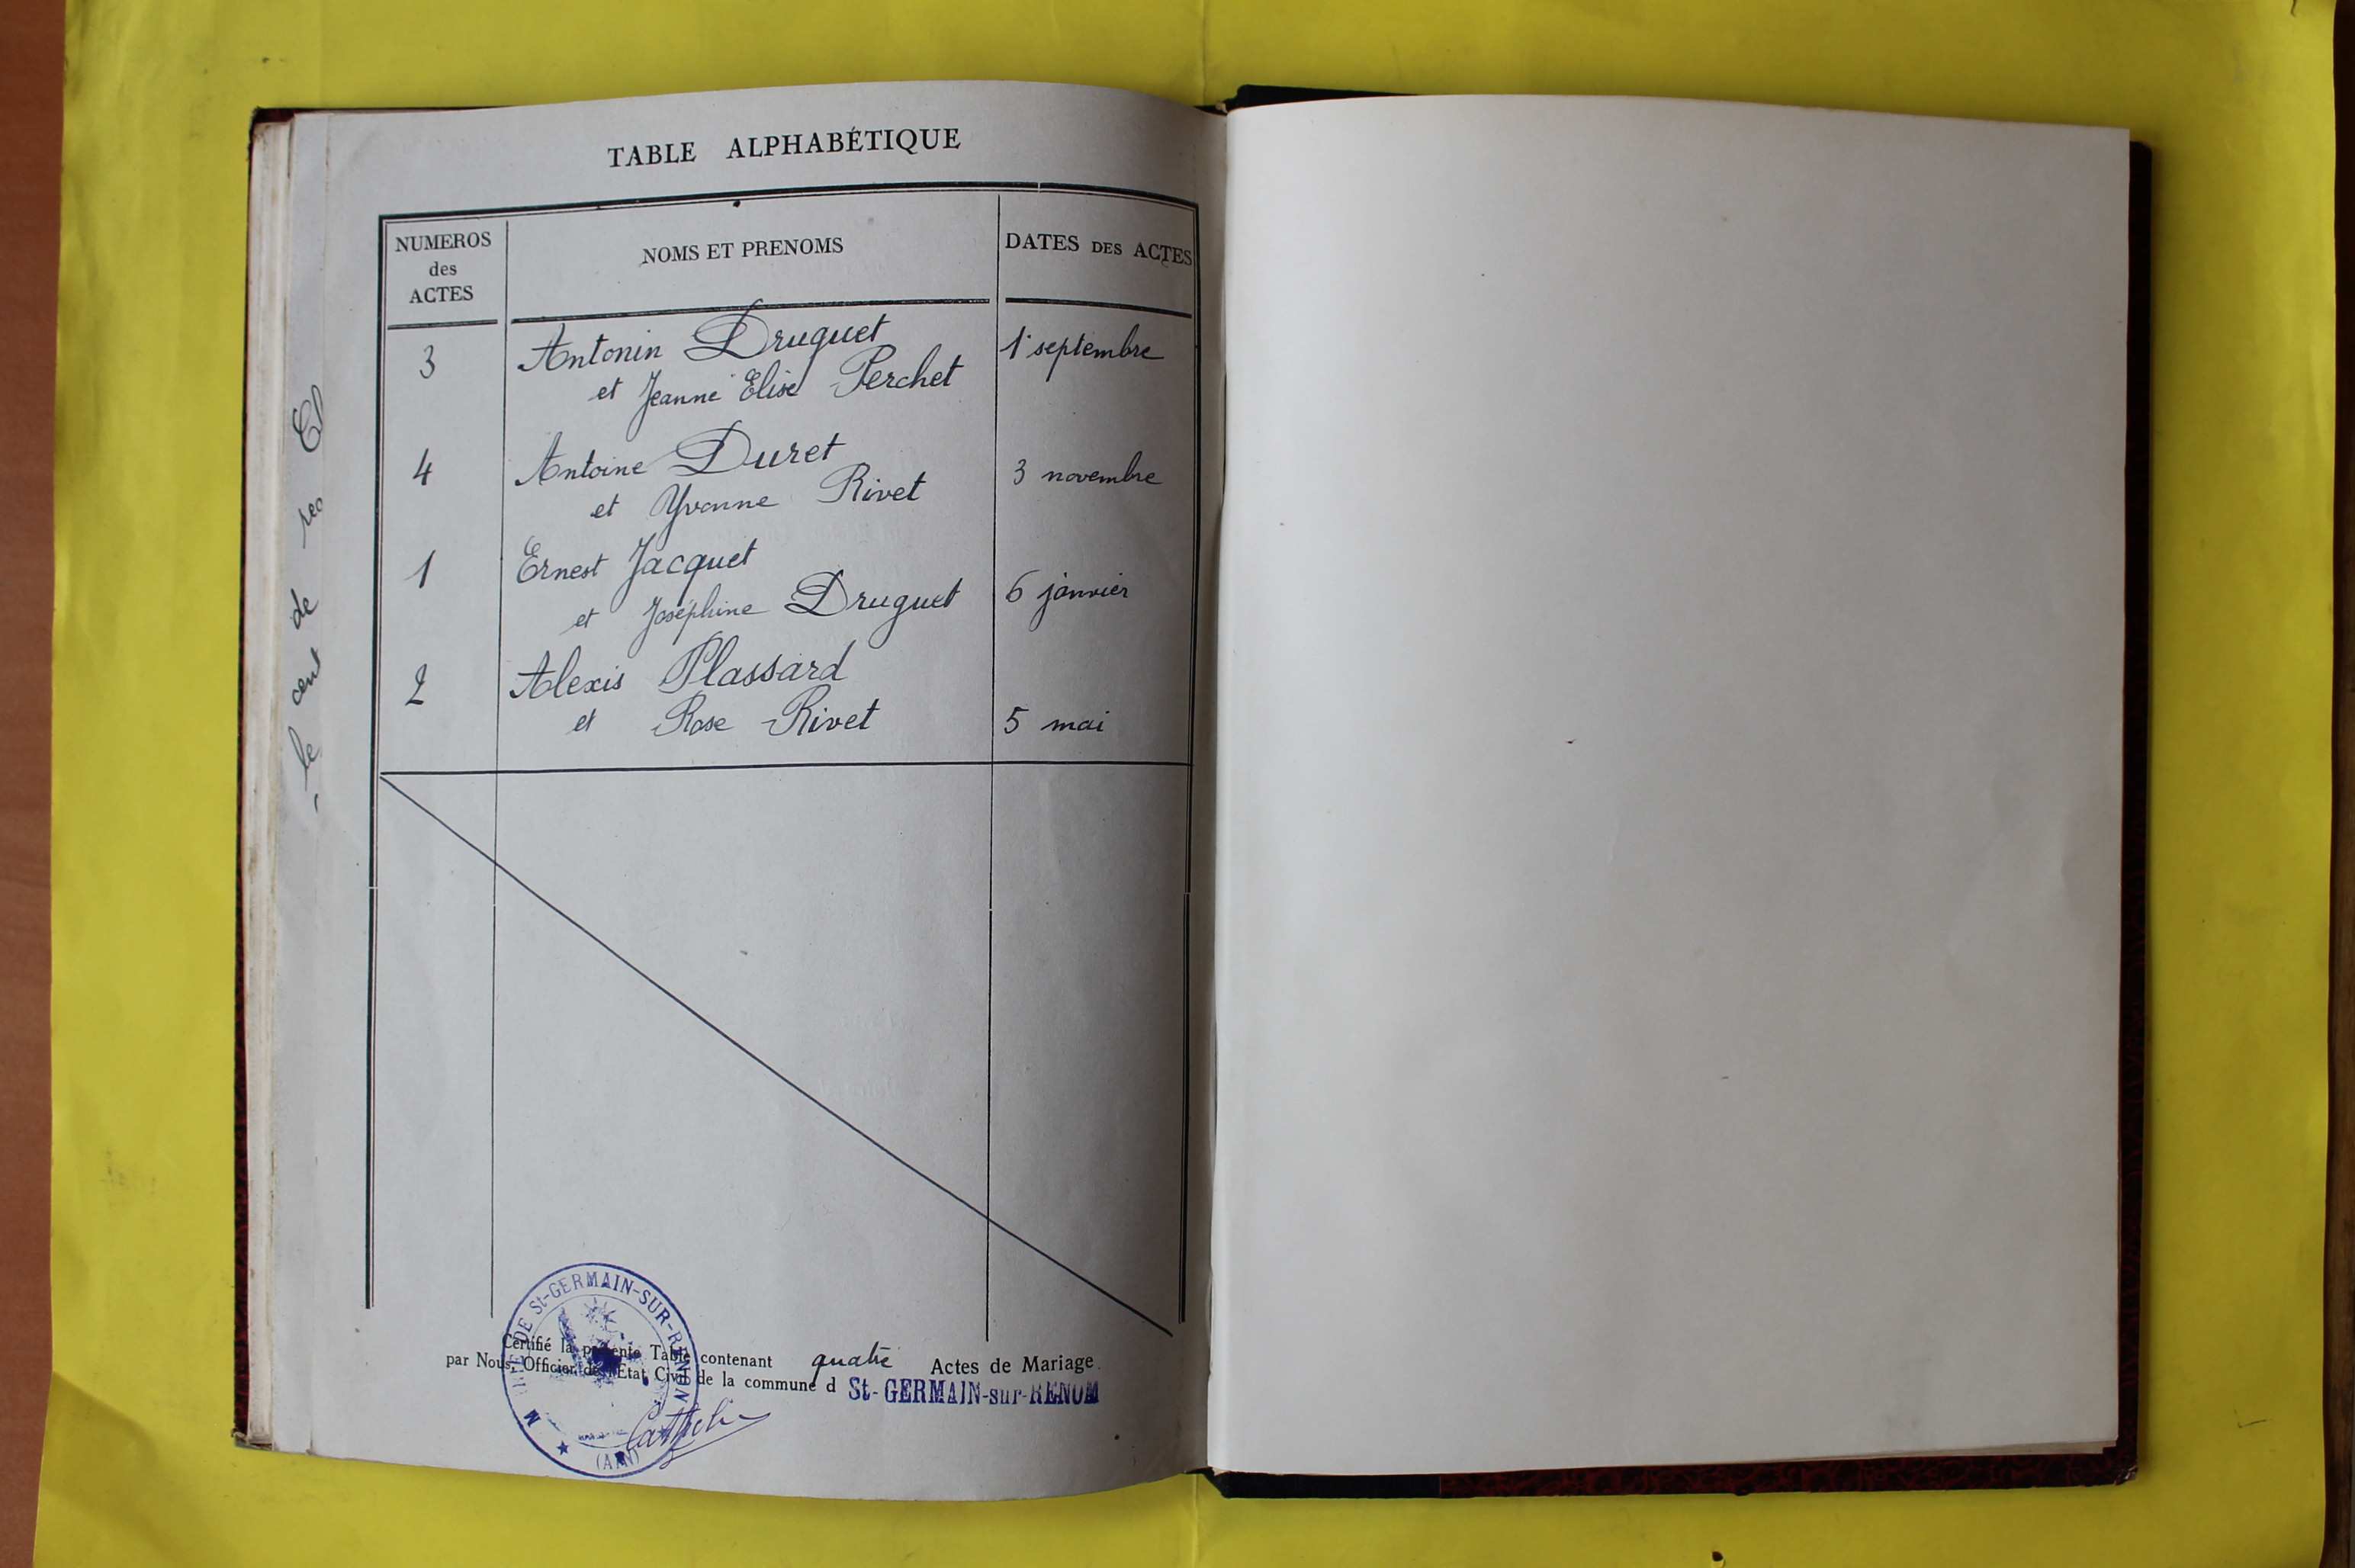 TABLE ALPHABÉTIQUE
NUMEROS
des
ACTES
NOMS ET PRENOMS
DATES DES ACTES
3 Antonin Druguet 1er septembre
et Jeanne Elise Perchet
4 Antoine Duret 3 novembre
et Yvonne Rivet
1 Ernest Jacquet
et Joséphine Druguet 6 janvier
2 Alexis Plassard
et Rose Rivet 5 mai
Certifié la présente Table contenant quatre Actes de Mariage
par Nous, Officier de l'Etat Civil de la commune d St-GERMAIN-sur-RENOM
DE St-GERMAIN-SUR-RENON
(AIN)
le cent de